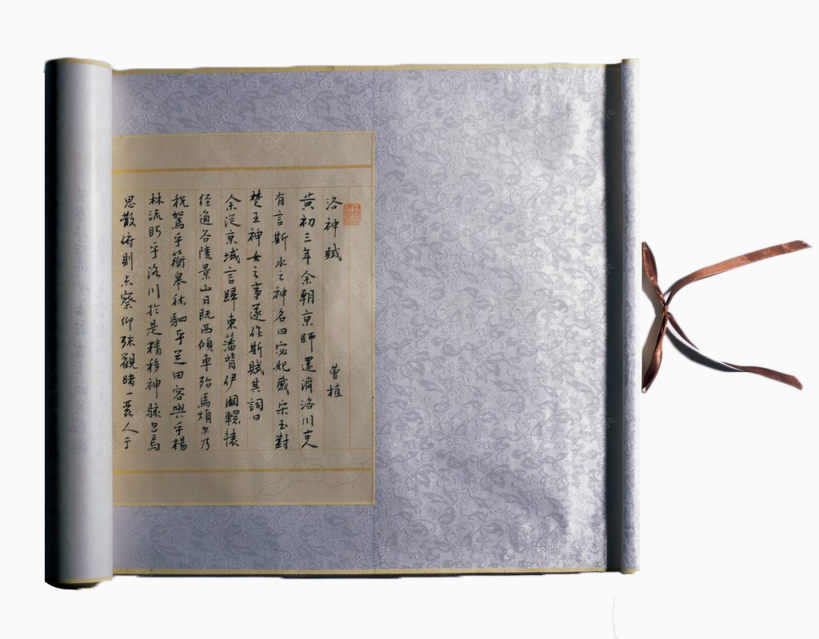 洛神賦 曹植
黃初三年余朝京師還濟洛川古人
有言斯水之神名曰宓妃感宋玉對
楚王神女之事遂作斯賦其詞曰
余從京域言歸東藩背伊闕轘轅
经通谷陵景山日既西傾車殆馬煩尔乃
税駕乎蘅皋秣駟乎芝田容與乎楊
林流眄乎洛川於是精移神駭忽焉
思散俯則未察仰殊觀睹一麗人于